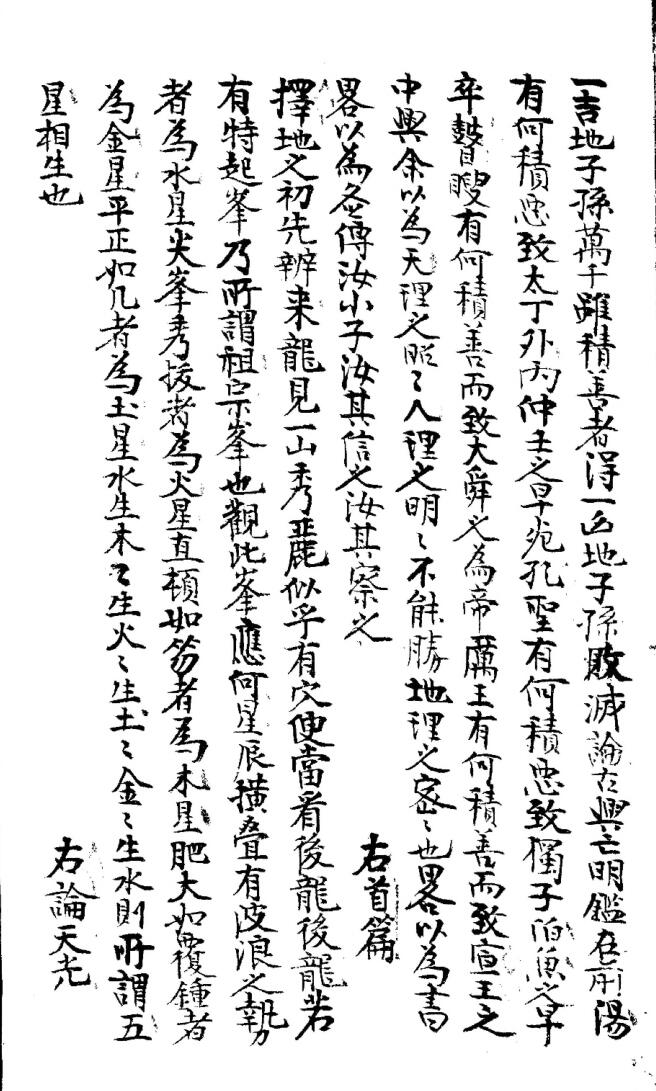 一吉地子孫萬千雖積善者得一凶地子孫敗滅論古興亡明鑑在前湯
有何積惡致太丁外丙仲壬之早死孔聖有何積惡致獨子伯魚之早
卒瞽瞍有何積善而致大舜之為帝厲王有何積善而致宣王之
中興余以為天理之昭〻人理之明〻不能勝地理之密〻也畧以為書
畧以為久傳汝小子汝其信之汝其察之 右首篇
擇地之初先辨来龍見一山秀麗似乎有穴便當看後龍後龍若
有特起峯乃所謂祖宗峯也觀此峯應何星辰橫疊有波浪之勢
者為水星尖峯秀拔者為火星直頓如笏者為木星肥大如覆鍾者
為金星平正如几者為土星水生木〻生火〻生土〻金〻生水則所謂五
星相生也 右論天光